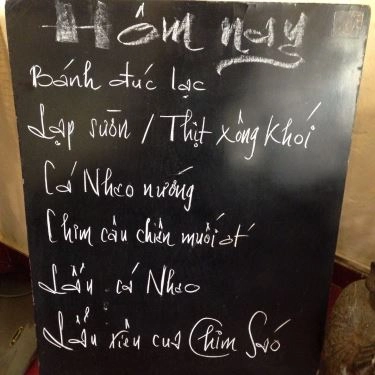 Hôm nay
Bánh đúc lạc
Lạp sườn / Thịt xông khói
Cá Nheo nướng
Chim câu chiên muối ớt
Lẩu cá Nheo
Lẩu riêu cua Chim Sáo